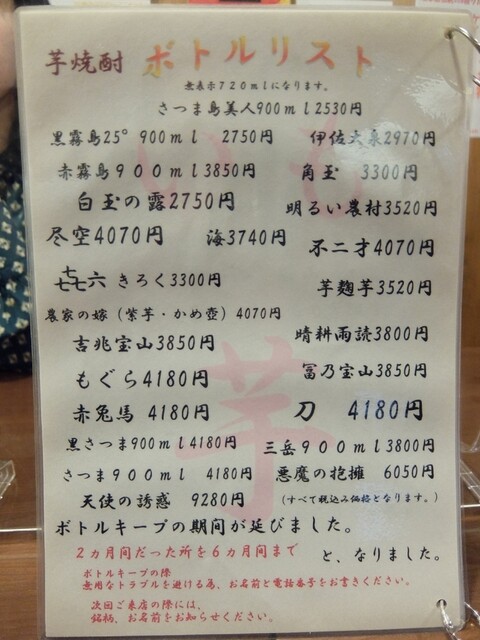 芋焼酎 ボトルリスト
無表示720mlになります。
さつま島美人900ml2530円
黒霧島25°900ml 2750円 伊佐大泉2970円
赤霧島900ml3850円 角玉 3300円
白玉の露2750円 明るい農村3520円
尽空4070円 海3740円 不二才4070円
七七七六 きろく3300円 芋麹芋3520円
農家の嫁(紫芋・かめ壺)4070円
吉兆宝山3850円 晴耕雨読3800円
もぐら4180円 冨乃宝山3850円
赤兎馬 4180円 刀 4180円
黒さつま900ml4180円 三岳900ml3800円
さつま900ml 4180円 悪魔の抱擁 6050円
天使の誘惑 9280円 (すべて税込み価格となります。)
ボトルキープの期間が延びました。
2カ月間だった所を6カ月間まで と、なりました。
ボトルキープの際
無用なトラブルを避ける為、お名前と電話番号をお書きください。
次回ご来店の際には、
銘柄、お名前をお知らせください。
芋